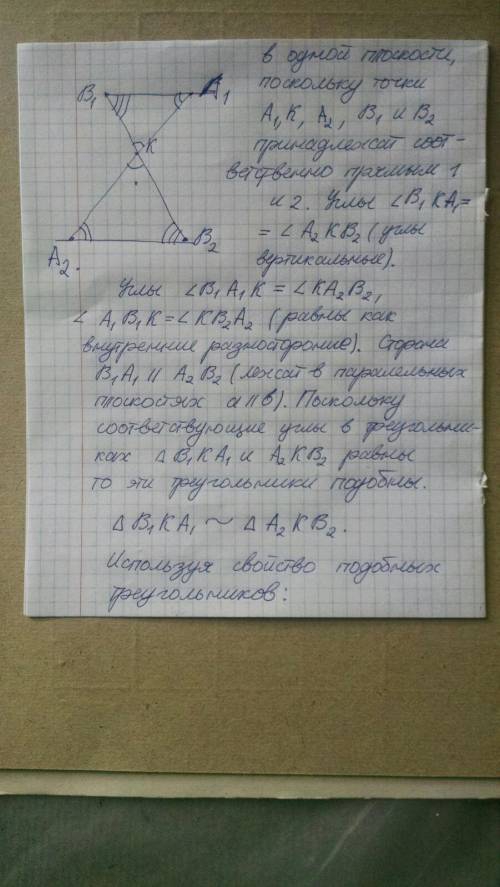 в одной плоскости,
поскольку точки
B₁ A₁
A₁, K, A₂, B₁ и B₂
K
принадлежат соот-
ветственно прямым 1
и 2. Углы ∠B₁KA₁=
= ∠A₂KB₂ (углы
A₂. B₂
вертикальные).
Углы ∠B₁A₁K = ∠KA₂B₂,
∠ A₁B₁K=∠KB₂A₂ (равны как
внутренние разносторонние). Сторона
B₁A₁ || A₂B₂ (лежат в паралельных
плоскостях a || b). Поскольку
соответствующие углы в треугольни-
ках △ B₁KA₁ и A₂KB₂ равны
то эти треугольники подобны.
△ B₁KA₁ ~ △ A₂KB₂.
Используя свойство подобных
треугольников: